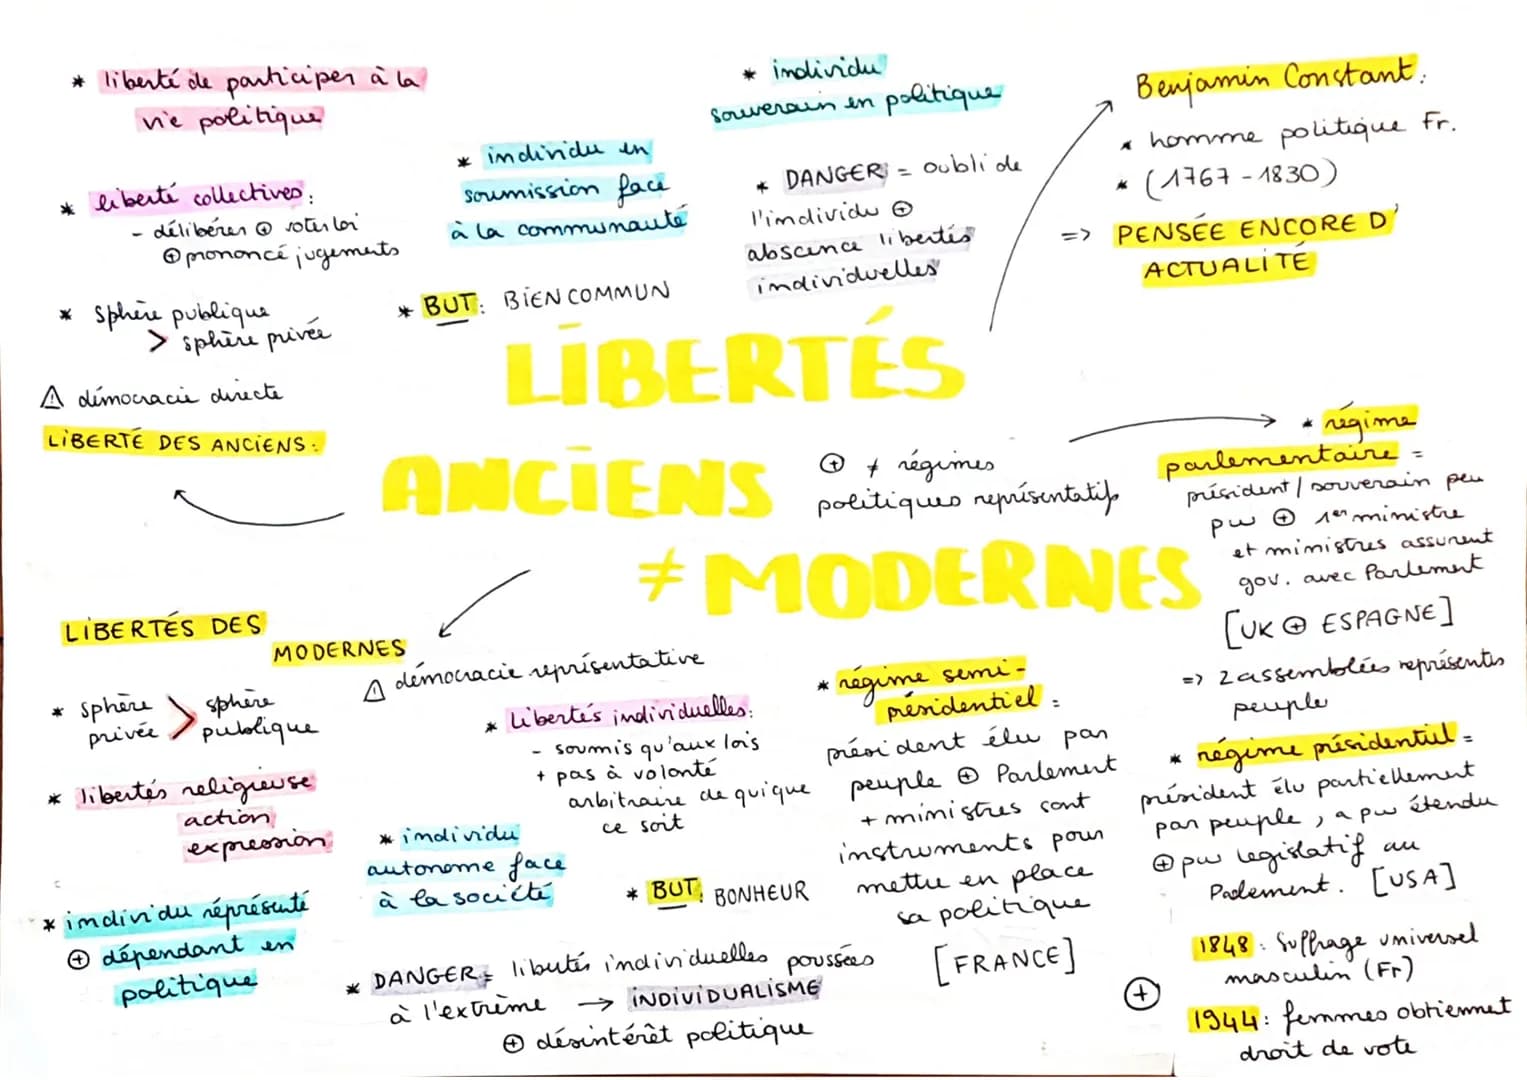 * liberté de participer à la
vie politique
* liberté collectives :
- délibérer ⊕ voter loi
⊕ prononcé jugements
* Sphère publique
> sphère privée
⚠ démocracie directe
LIBERTÉ DES ANCIENS :
* individu en
soumission face
à la communauté
* BUT : BIEN COMMUN
* individu
souverain en politique
* DANGER = oubli de
l'individu ⊕
abscence libertés
individuelles
Benjamin Constant :
* homme politique Fr.
* (1767 - 1830)
=> PENSÉE ENCORE D'
ACTUALITÉ
LIBERTÉS
ANCIENS
≠ MODERNES
⊕ ≠ régimes
politiques représentatifs
* régime
parlementaire =
président / souverain peu
pw ⊕ 1er ministre
et ministres assurent
gov. avec Parlement
[UK ⊕ ESPAGNE]
=> 2 assemblées représentes
peuple
* régime présidentiel =
président élu partiellement
par peuple, a pw étendu
⊕ pw legislatif au
Parlement. [USA]
LIBERTÉS DES
MODERNES
⚠ démocracie représentative
* sphère > sphère
privée publique
* libertés religieuse
action
expression
* individu réprésenté
⊕ dépendant en
politique
* Libertés individuelles :
- soumis qu'aux lois
+ pas à volonté
arbitraire de quique
ce soit
* individu
autonome face
à la société
* BUT : BONHEUR
* DANGER = libertés individuelles poussées
à l'extrême → INDIVIDUALISME
⊕ désintérêt politique
* régime semi-
présidentiel :
président élu par
peuple ⊕ Parlement
+ ministres sont
instruments pour
mettre en place
sa politique
[FRANCE]
⊕
1848 : Suffrage universel
masculin (Fr)
1944 : femmes obtiennet
droit de vote